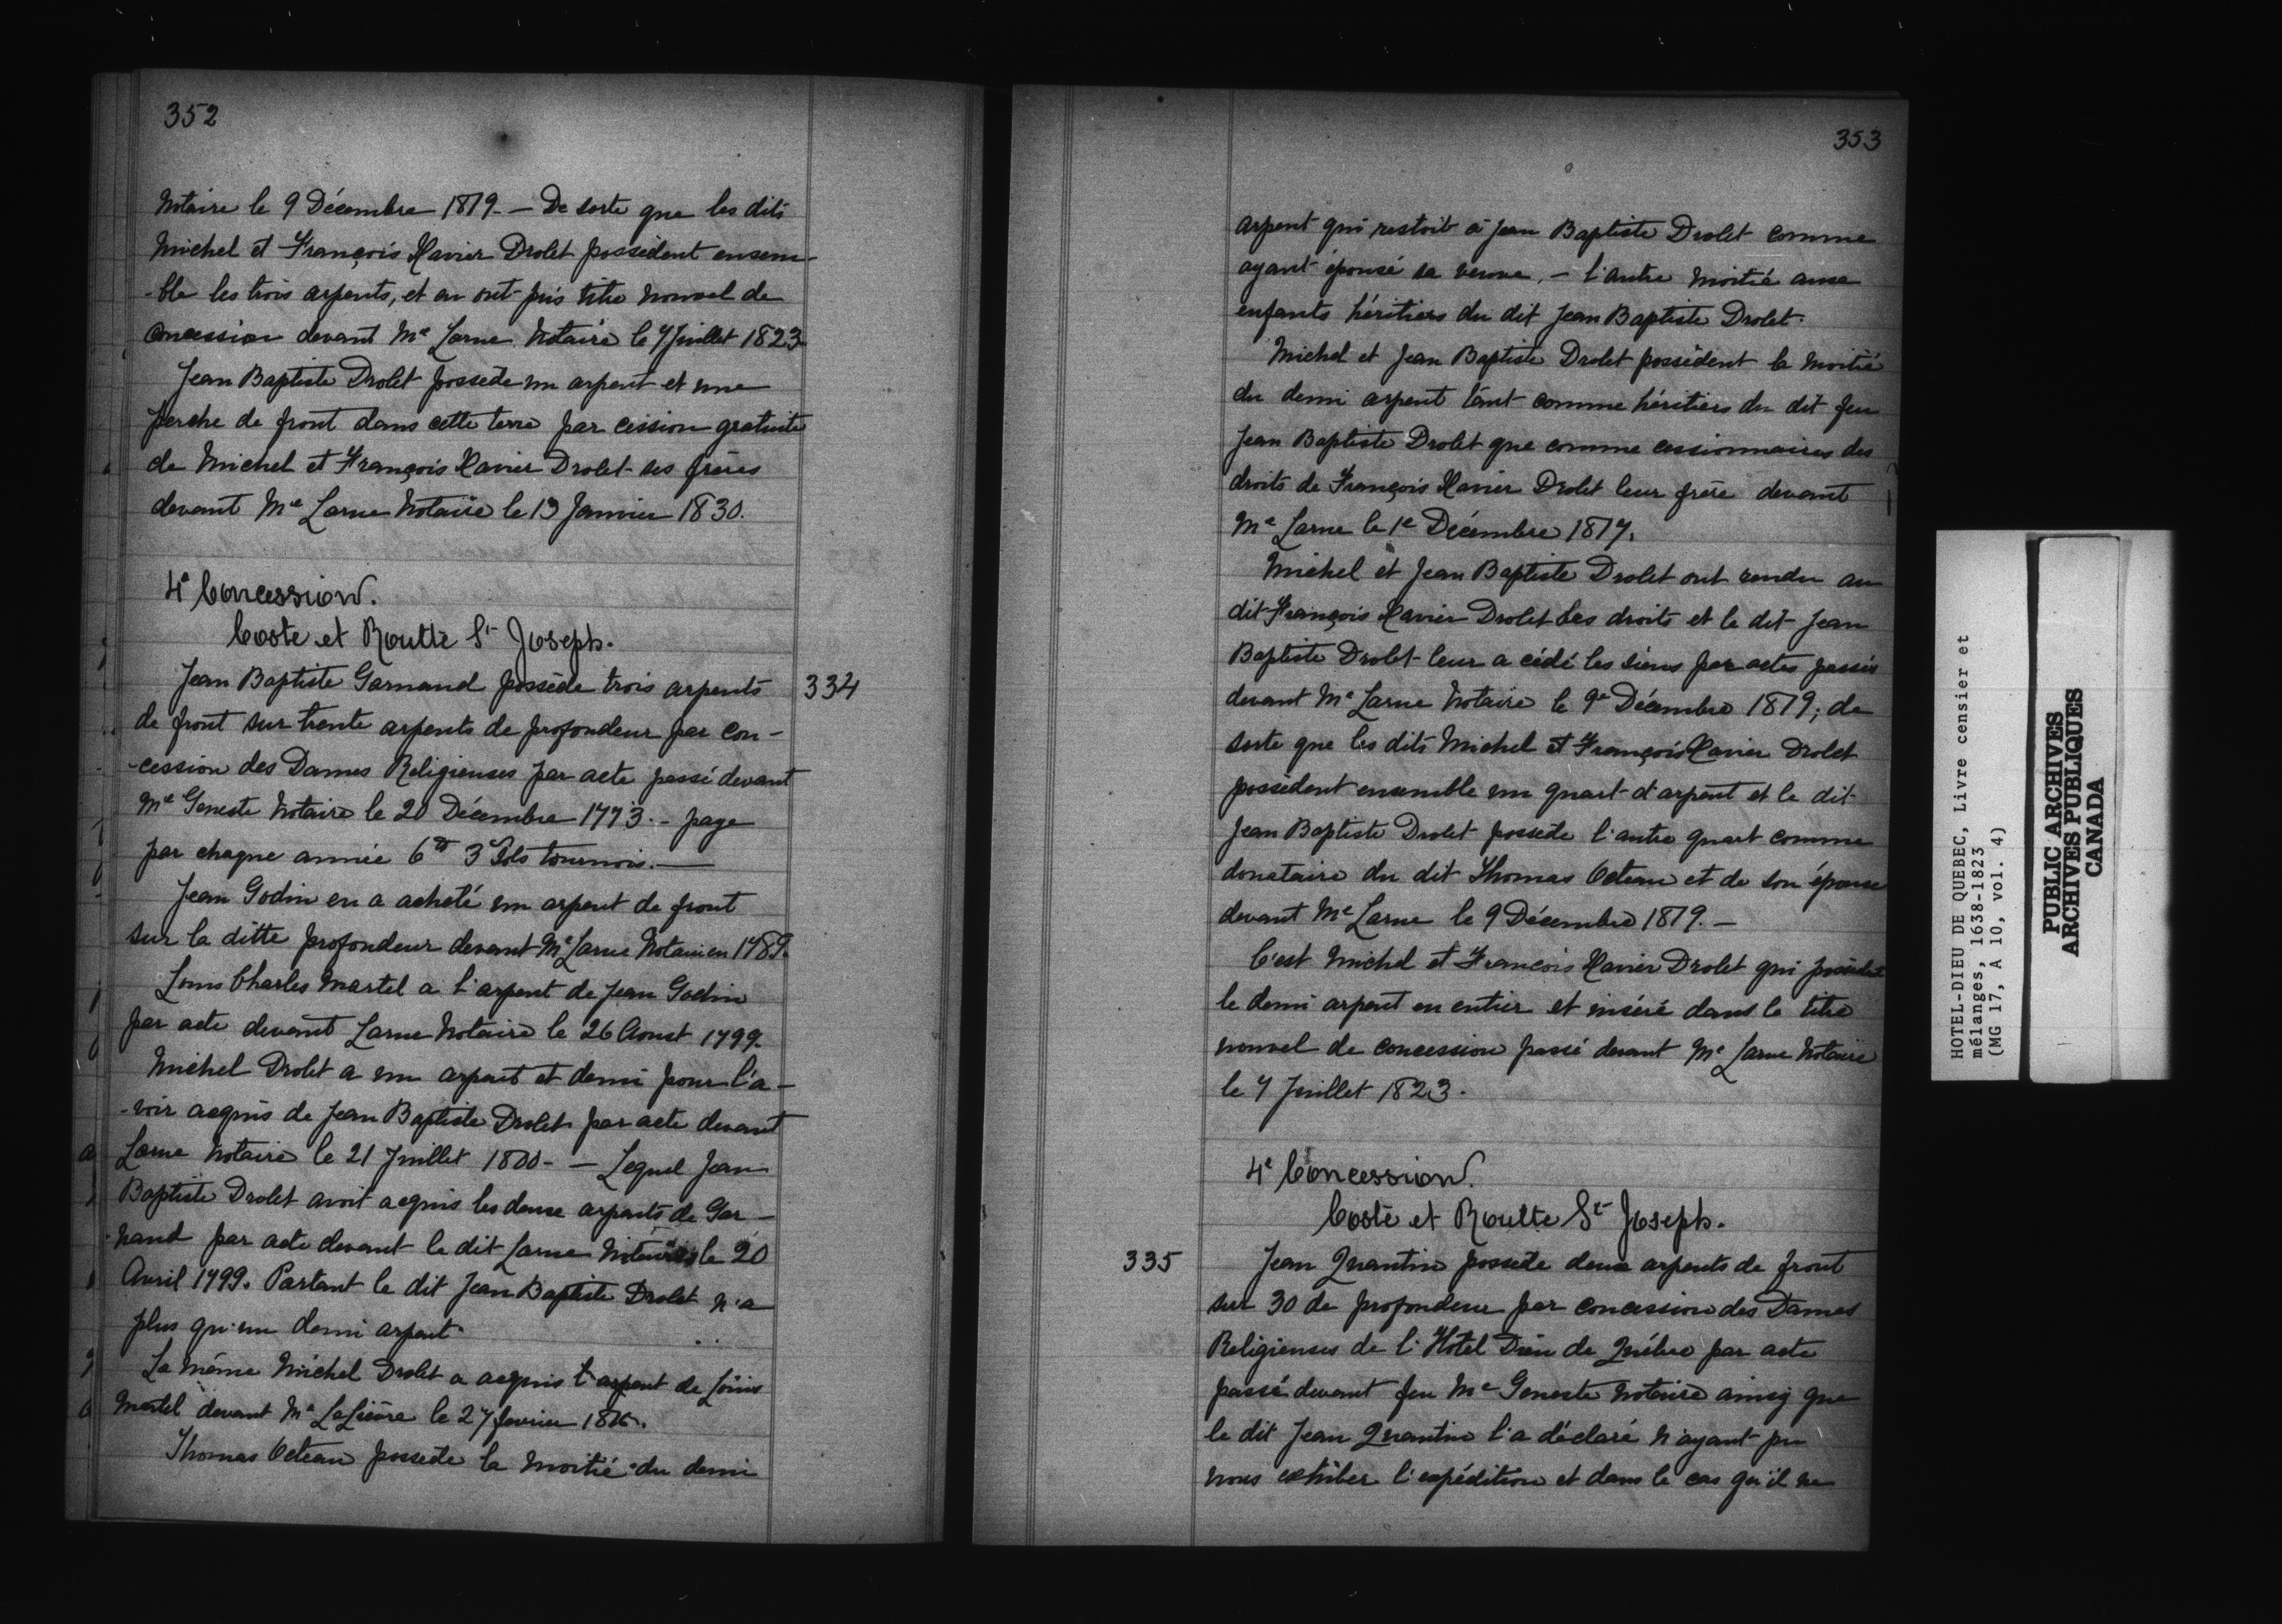 352
Notaire le 9 Décembre 1819. — De sorte que les dits
Michel et François Xavier Drolet possèdent ensem-
-ble les trois arpents, et en ont pris titre nouvel de
Concession devant Me Larue Notaire le 7 Juillet 1823.
Jean Baptiste Drolet possede un arpent et une
perche de front dans cette terre par cession gratuite
de Michel et François Xavier Drolet ses frères
devant Me Larue Notaire le 13 Janvier 1830.
4e Concession.
Coste et Routte St Joseph.
Jean Baptiste Garnaud possède trois arpents 334
de front sur trente arpents de profondeur par con-
-cession des Dames Religieuses par acte passé devant
Me Geneste Notaire le 20 Décembre 1773. - page
par chaque année 6tt 3 Sols tournois. —
Jean Godin en a acheté un arpent de front
sur la ditte profondeur devant Me Larue Notaire en 1789.
Louis Charles Martel a l'arpent de Jean Godin
par acte devant Larue Notaire le 26 Aoust 1799.
Michel Drolet a un arpent et demi pour l'a-
-voir acquis de Jean Baptiste Drolet par acte devant
Larue Notaire le 21 Juillet 1800. — Lequel Jean
Baptiste Drolet avoit acquis les deux arpents de Gar-
-naud par acte devant le dit Larue Notaire le 20
Avril 1799. Partant le dit Jean Baptiste Drolet n'a
plus qu'un demi arpent.
Le même Michel Drolet a acquis l'arpent de Louis
Martel devant Me LeLièvre le 27 fevrier
Thomas Octeau possede la moitié du demi
353
arpent qui restoit à Jean Baptiste Drolet comme
ayant épousé sa veuve. — l'autre moitié aux
enfants héritiers du dit Jean Baptiste Drolet.
Michel et Jean Baptiste Drolet possèdent la moitié
du demi arpent tant comme héritiers du dit feu
Jean Baptiste Drolet que comme cessionnaires des
droits de François Xavier Drolet leur frère devant
Me Larue le 1e Décembre 1817.
Michel et Jean Baptiste Drolet ont rendu au
dit François Xavier Drolet ses droits et le dit Jean
Baptiste Drolet leur a cédé les siens par actes passés
devant Me Larue Notaire le 9e Décembre 1819; de
sorte que les dits Michel et François Xavier Drolet
possèdent ensemble un quart d'arpent et le dit
Jean Baptiste Drolet possède l'autre quart comme
donataire du dit Thomas Octeau et de son épouse
devant Me Larue le 9 Décembre 1819. —
C'est Michel et François Xavier Drolet qui possèdent
le demi arpent en entier et inséré dans le titre
nouvel de concession passé devant Me Larue Notaire
le 7 Juillet 1823.
4e Concession.
Coste et Routte St Joseph.
335 Jean Quantin possede deux arpents de front
sur 30 de profondeur par concession des Dames
Religieuses de l'Hotel Dieu de Québec par acte
passé devant feu Me Geneste notaire ainsy que
le dit Jean Quantin l'a déclaré n'ayant pu
nous exhiber l'expédition et dans le cas qu'il ne
HOTEL-DIEU DE QUEBEC, Livre censier et
mélanges, 1638-1823
(MG 17, A 10, vol. 4)
PUBLIC ARCHIVES
ARCHIVES PUBLIQUES
CANADA